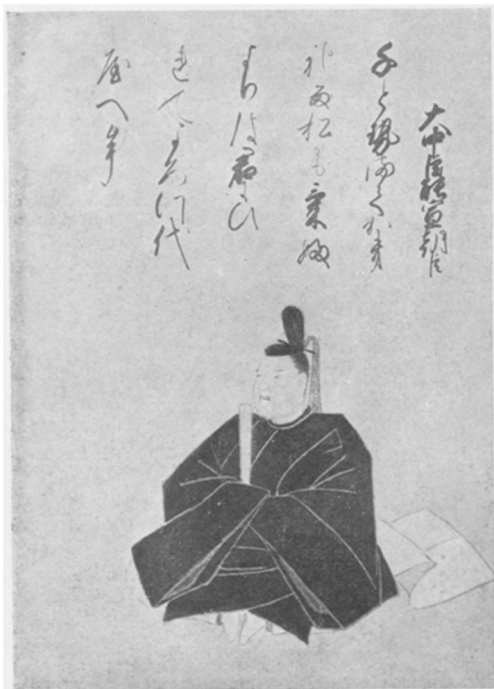 大中臣能宣朝臣
千と勢満てかき
れる松もけふ
よりは君にひ
かれてよろつ代
屋へ牟